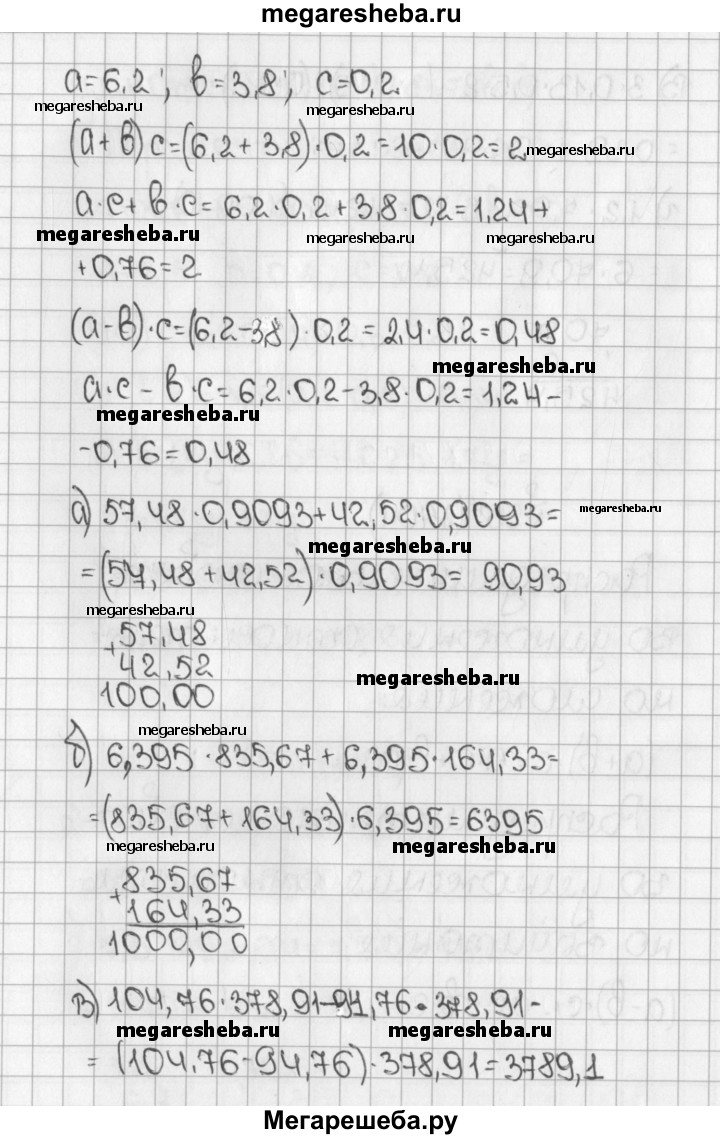 megaresheba.ru
a=6,2; в=3,8; с=0,2
megaresheba.ru megaresheba.ru
(а+в)с=(6,2+3,8)·0,2=10·0,2=2 megaresheba.ru
а·с+в·с=6,2·0,2+3,8·0,2=1,24+
megaresheba.ru megaresheba.ru megaresheba.ru
+0,76=2
(а-в)·с=(6,2-3,8)·0,2=2,4·0,2=0,48
megaresheba.ru
а·с-в·с=6,2·0,2-3,8·0,2=1,24-
megaresheba.ru
-0,76=0,48
а) 57,48·0,9093+42,52·0,9093= megaresheba.ru
megaresheba.ru
=(57,48+42,52)·0,9093=90,93
megaresheba.ru
+57,48
42,52
megaresheba.ru
100,00
megaresheba.ru
б) 6,395·835,67+6,395·164,33=
=(835,67+164,33)·6,395=6395
megaresheba.ru megaresheba.ru
+835,67
164,33
1000,00
в) 104,76·378,91-94,76·378,91-
megaresheba.ru megaresheba.ru
=(104,76-94,76)·378,91=3789,1
Мегарешеба.ру